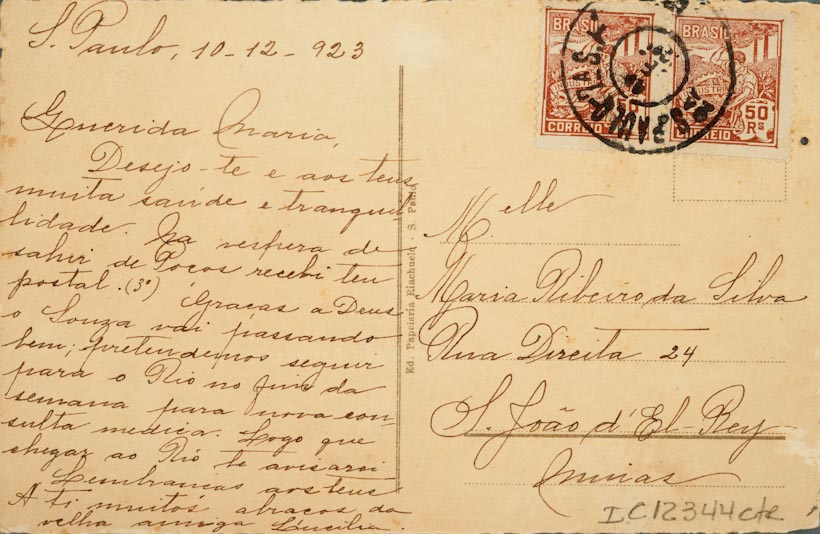 S. Paulo, 10-12-923
Querida Maria,
Desejo-te e aos teus
muita saúde e tranquil-
lidade. Na vespera de
sahir de Poços recebi teu
postal. (3º) Graças a Deus
o Souza vai passando
bem; pretendemos seguir
para o Rio no fim da
semana para nova con-
sulta medica. Logo que
chegar ao Rio te avisarei
Lembranças aos teus
A ti muitos abraços da
velha amiga Lucilia.
Ed. Papelaria Riachuelo - S. Paulo
BRASIL
INDUSTRIA
50
CORREIO
BRASIL
50 Rs
CORREIO
S. PAULO
M.elle
Maria Ribeiro da Silva
Rua Direita 24
S. João d'El-Rey
Minas
I.C12344cte